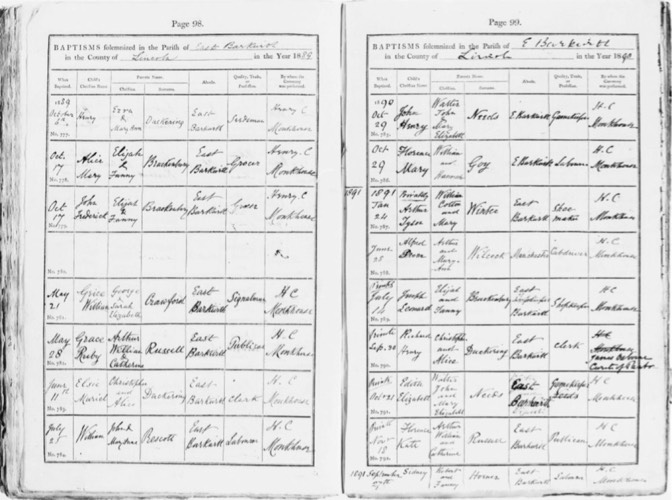 Page 98.
BAPTISMS solemnized in the Parish of East Barkwith
in the County of Lincoln in the Year 1889
When Baptized. Child's Christian Name. Parents Name. Christian. Surname. Abode. Quality, Trade, or Profession. By whom the Ceremony was performed.
1889 October No. 777. Henry Ezra & Mary Ann Duckering East Barkwith Henry C Monkhouse
Oct 17 No. 778. Alice Mary Elijah & Fanny Brackenbury East Barkwith Grocer Henry C Monkhouse
Oct 17 No. 779. John Frederick Elijah & Fanny Brackenbury East Barkwith Grocer Henry C Monkhouse
No. 780.
May 21 No. 781. William George & Sarah Elizabeth Crawford East Barkwith Signalman H C Monkhouse
May 28 No. 782. Grace Ruby Arthur William & Catherine Russell East Barkwith Publican H. C Monkhouse
June 11th No. 783. Elsie Muriel Christopher and Alice Duckering East Barkwith Clerk H. C Monkhouse
July No. 784. William John & Mary Anne Prescott East Barkwith Labourer H C Monkhouse
Page 99.
BAPTISMS solemnized in the Parish of E Barkwith
in the County of Lincoln in the Year 1890
When Baptized. Child's Christian Name. Parents Name. Christian. Surname. Abode. Quality, Trade, or Profession. By whom the Ceremony was performed.
1890 Oct 29 No. 785. John Henry Walter John & Mary Elizabeth Needs E Barkwith Gamekeeper H. C Monkhouse
Oct 29 No. 786. Florence Mary William and Goy E Barkwith Labourer H. C Monkhouse
1891
1891 Jan 24 No. 787. Privately Arthur William and Mary East Barkwith Shoe maker H. C Monkhouse
June 28 No. 788. Alfred Arthur and Mary Ann Wilcock Manchester H. C Monkhouse
July 14 No. 789. Joseph Leonard Elijah and Fanny Brackenbury East Barkwith Shopkeeper H. C Monkhouse
Private Sep. 20 No. 790. Richard Christopher and Alice Duckering East Barkwith Clerk
Private Oct 21 No. 791. Edith Elizabeth Walter John and Mary Elizabeth Needs East Barkwith Gamekeeper H. C Monkhouse
Private Nov 18 No. 792. Florence Kate Arthur William and Catherine Russell East Barkwith Publican H. C Monkhouse
September Sidney Robert and Fanny East Barkwith Labourer H. C Monkhouse